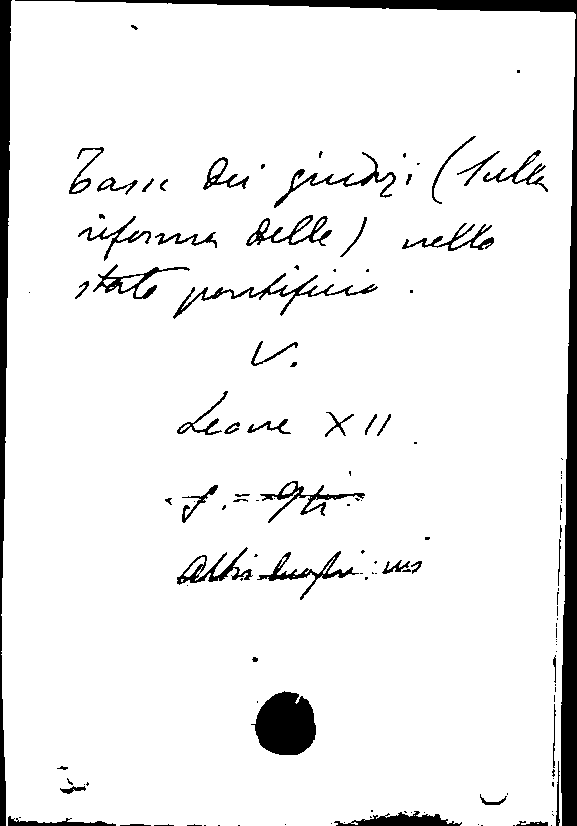 Tasse dei giudizi (Sulla
riforma delle) nello
stato pontificio.
V.
Leone XII.
Altri luoghi: ivi